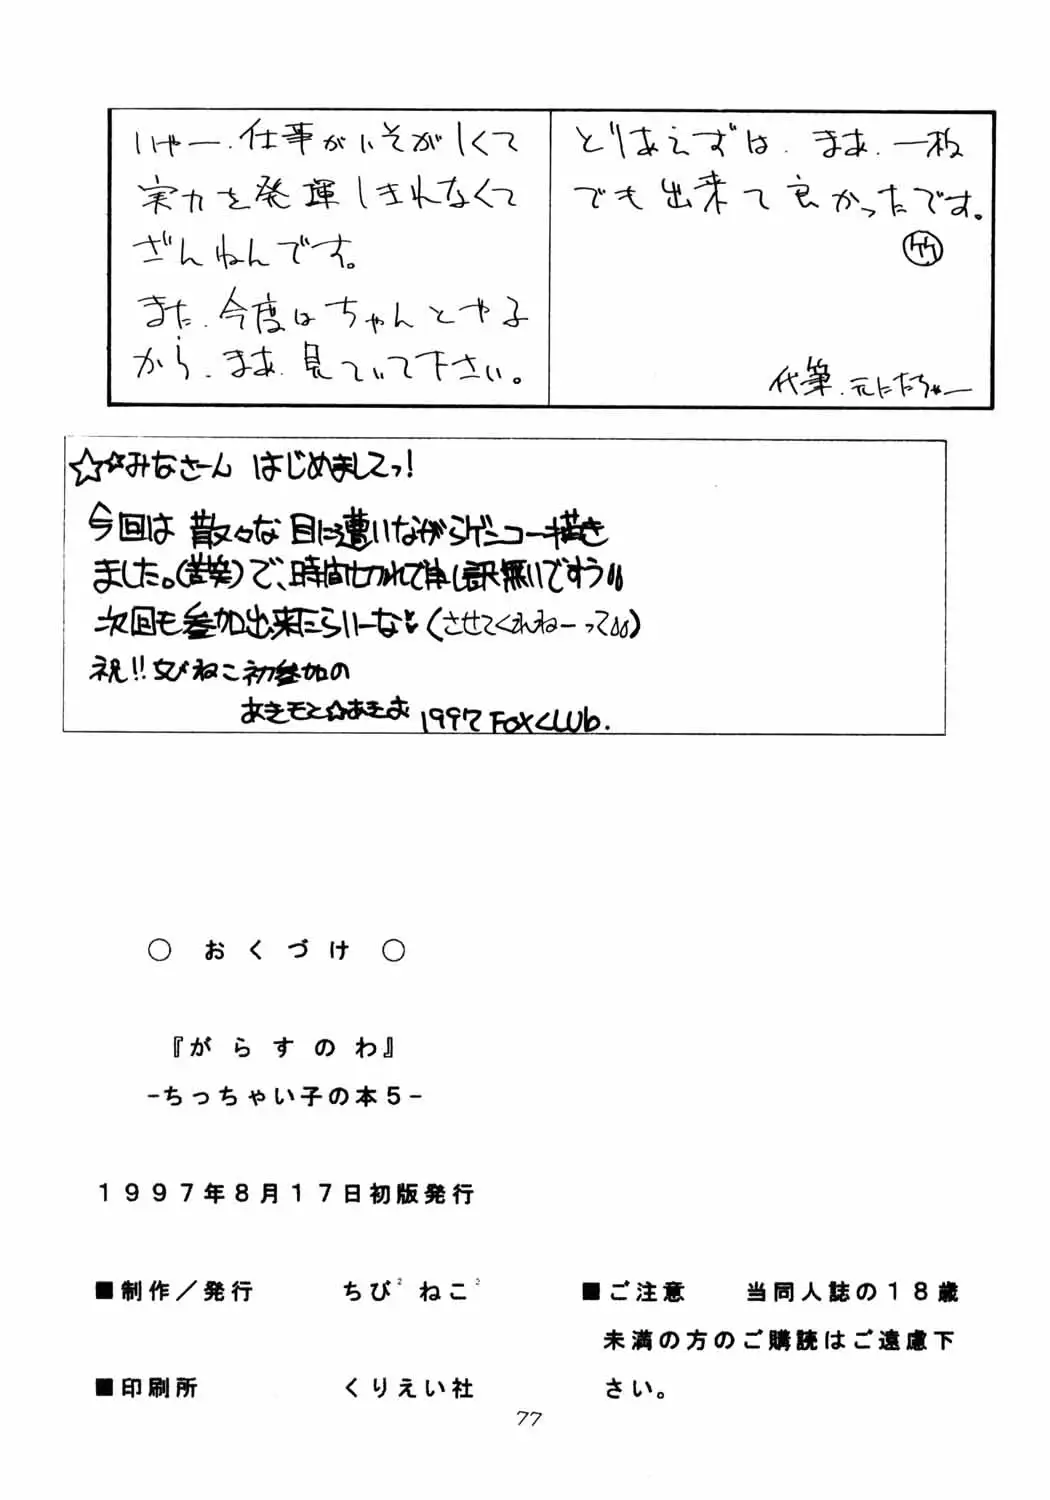 いやー、仕事がいそがしくて
実力を発揮しきれなくて
ざんねんです。
また、今度はちゃんとやる
から、まあ、見ていて下さい。
とりあえずは、まあ、一枚
でも出来て良かったです。
代筆、元にたちゃー
☆☆みなさーん はじめましてっ!
今回は 散々な 目に遭いながらゲンコー描き
ました。(苦笑)で、時間切れで申し訳無いですぅ
次回も参加出来たらいーな(させてくれねーって)
祝!!ちびねこ初参加の
あきもと☆あきお 1997 FOXCLUb.
○ おくづけ ○
『がらすのわ』
-ちっちゃい子の本5-
1997年8月17日初版発行
■制作/発行 ちび² ねこ³
■印刷所 くりえい社
■ご注意 当同人誌の18歳
未満の方のご購読はご遠慮下
さい。
77